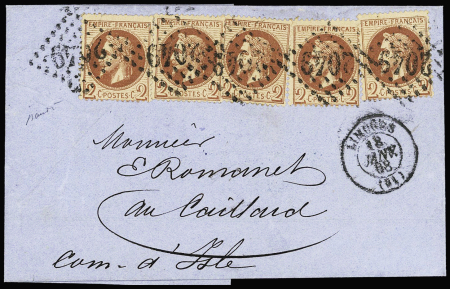 EMPIRE FRANÇAIS EMPIRE FRANÇAIS EMPIRE FRANÇAIS EMPIRE FRANÇAIS EMPIRE FRANÇAIS
2049 2049 2049 2049 2049
2 POSTES C. 2 2 POSTES C. 2 2 POSTES C. 2 2 POSTES C. 2 2 POSTES C. 2
LIMOGES
18
JANV.
68
(81)
Monsieur
E Romanet
au Caillaud
Com. d'Isle